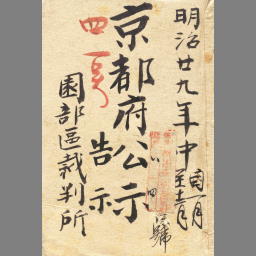 明治廿九年中
自一月
至十二月
京都府公示
告示
四号
園部區裁判所
号